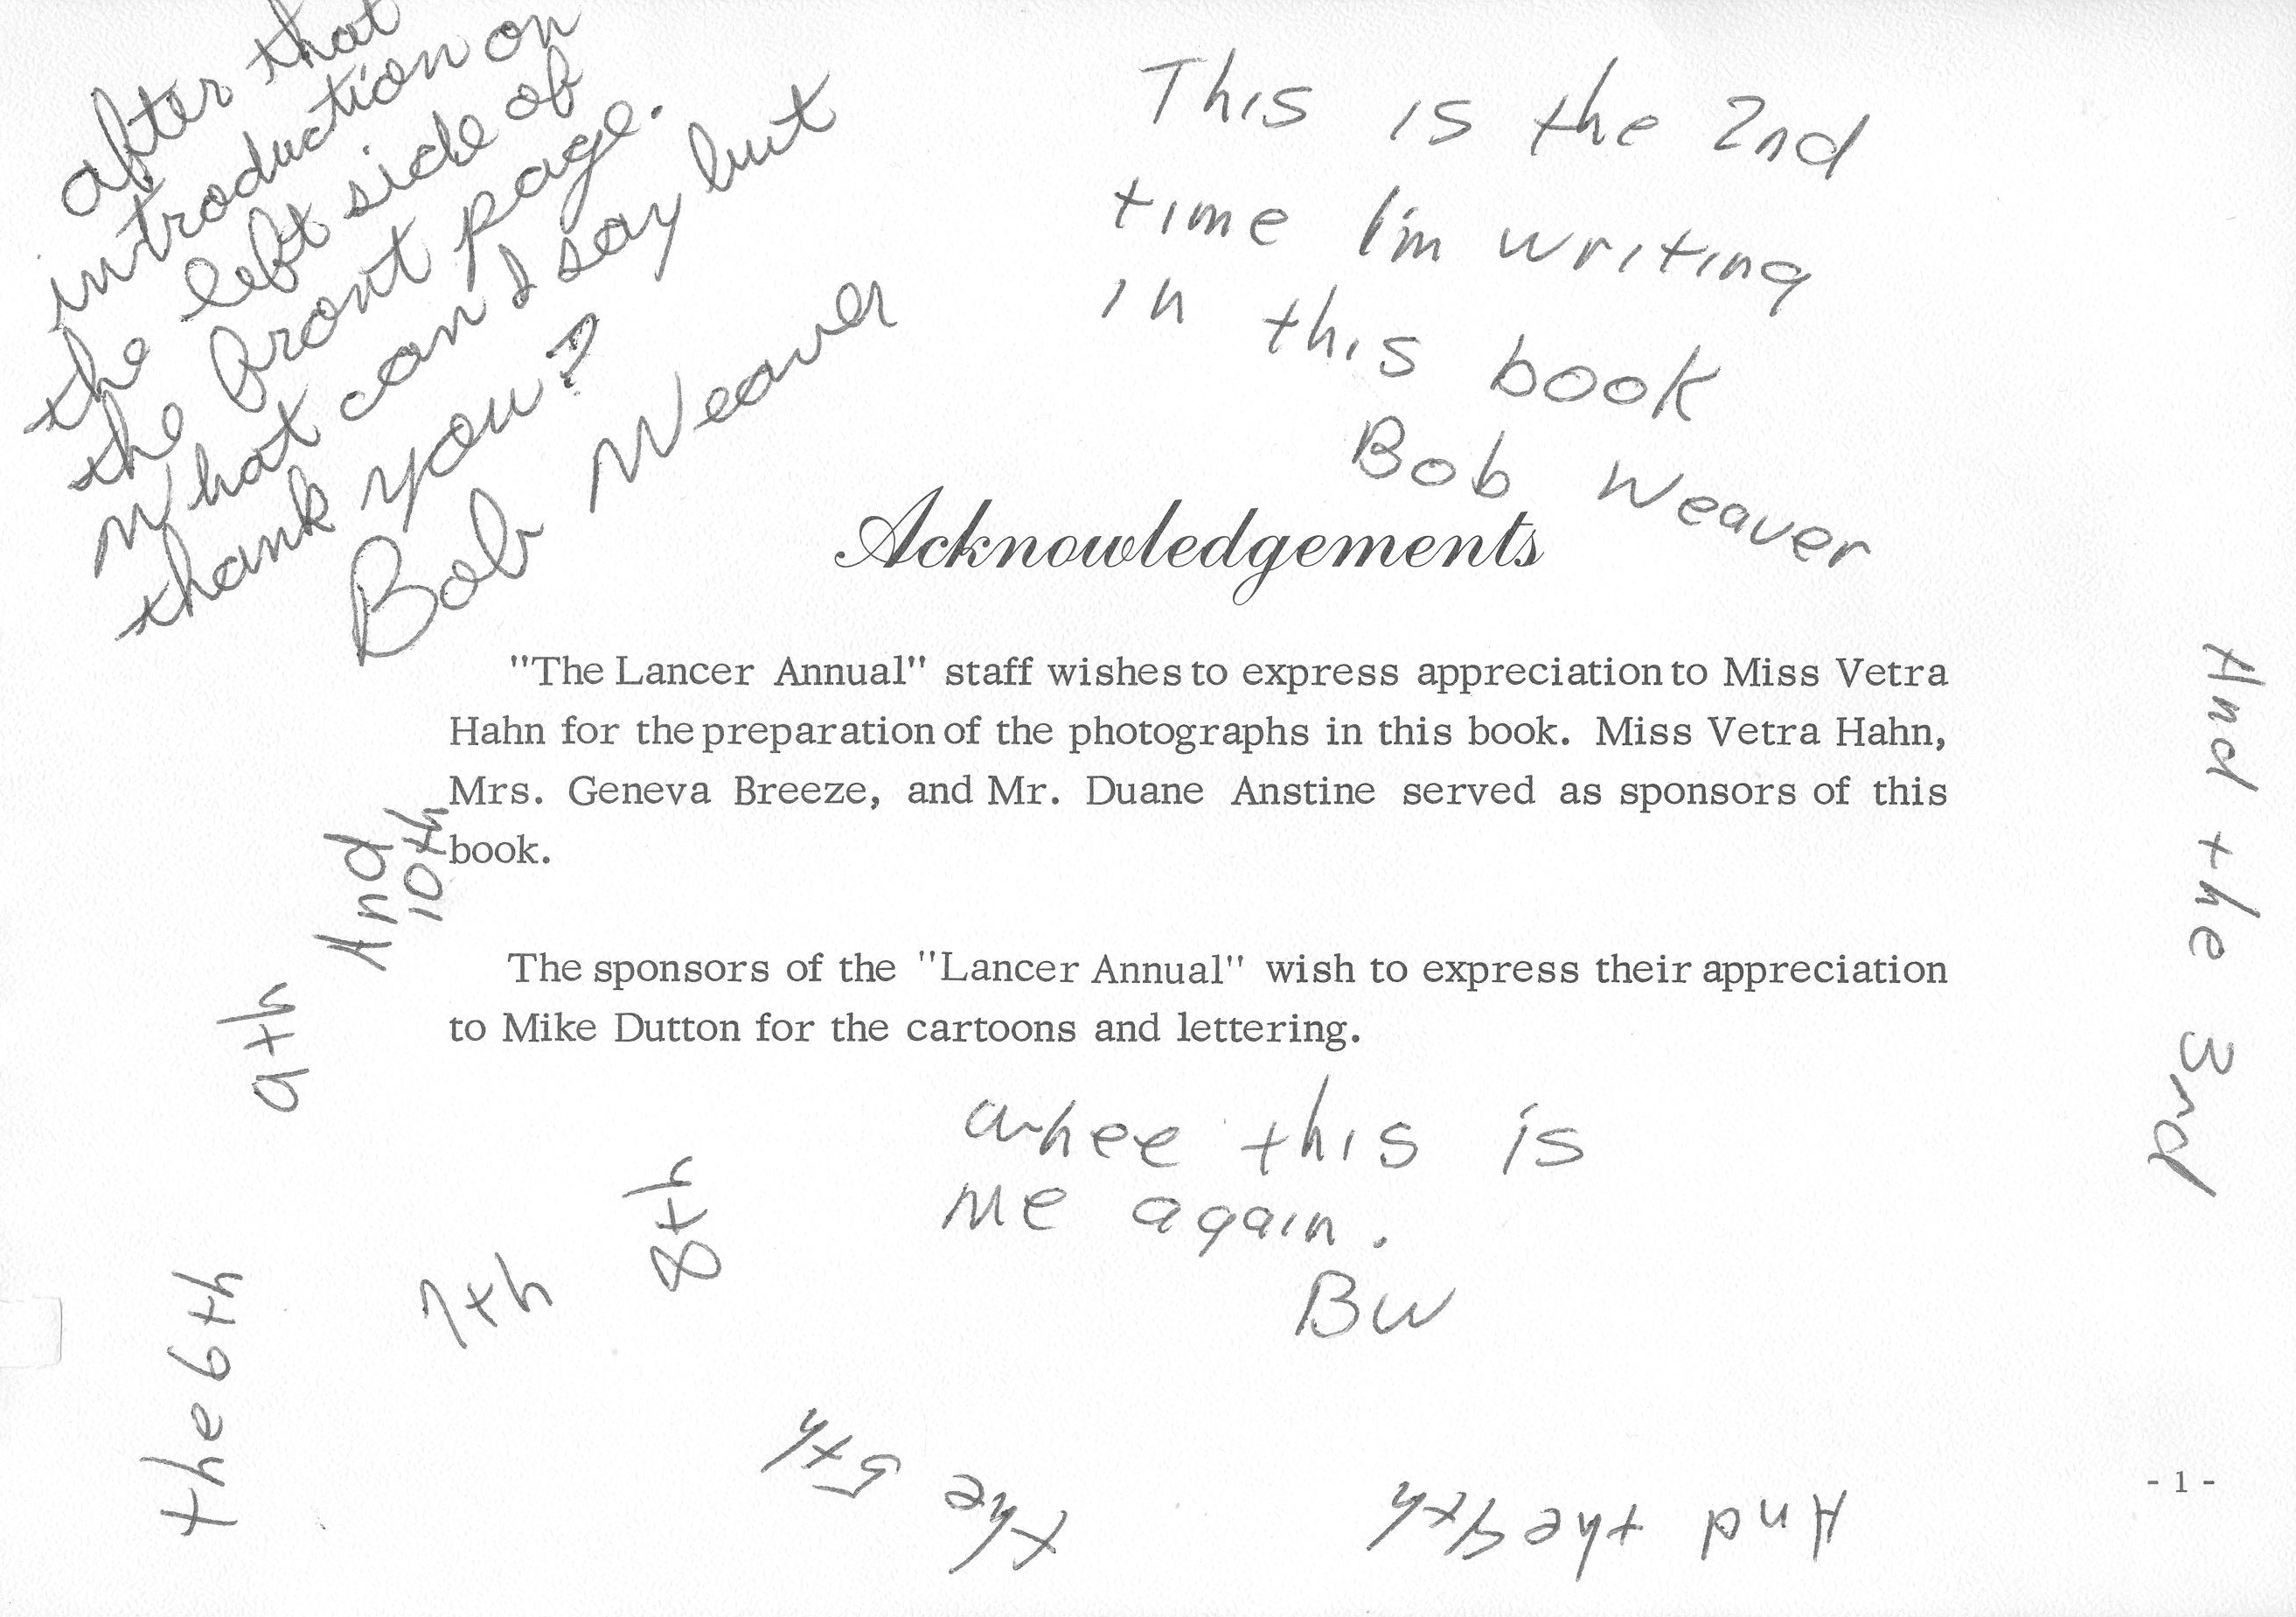 after that
introduction on
the left side of
the front page.
What can I say but
thank you?
Bob Weaver
This is the 2nd
time I'm writing
in this book
Bob Weaver
Acknowledgements
"The Lancer Annual" staff wishes to express appreciation to Miss Vetra
Hahn for the preparation of the photographs in this book. Miss Vetra Hahn,
Mrs. Geneva Breeze, and Mr. Duane Anstine served as sponsors of this
book.
The sponsors of the "Lancer Annual" wish to express their appreciation
to Mike Dutton for the cartoons and lettering.
And the 3rd
whee this is
me again.
BW
And the 4th
the 5th
the 6th
7th
8th
9th
And
10th
- 1 -